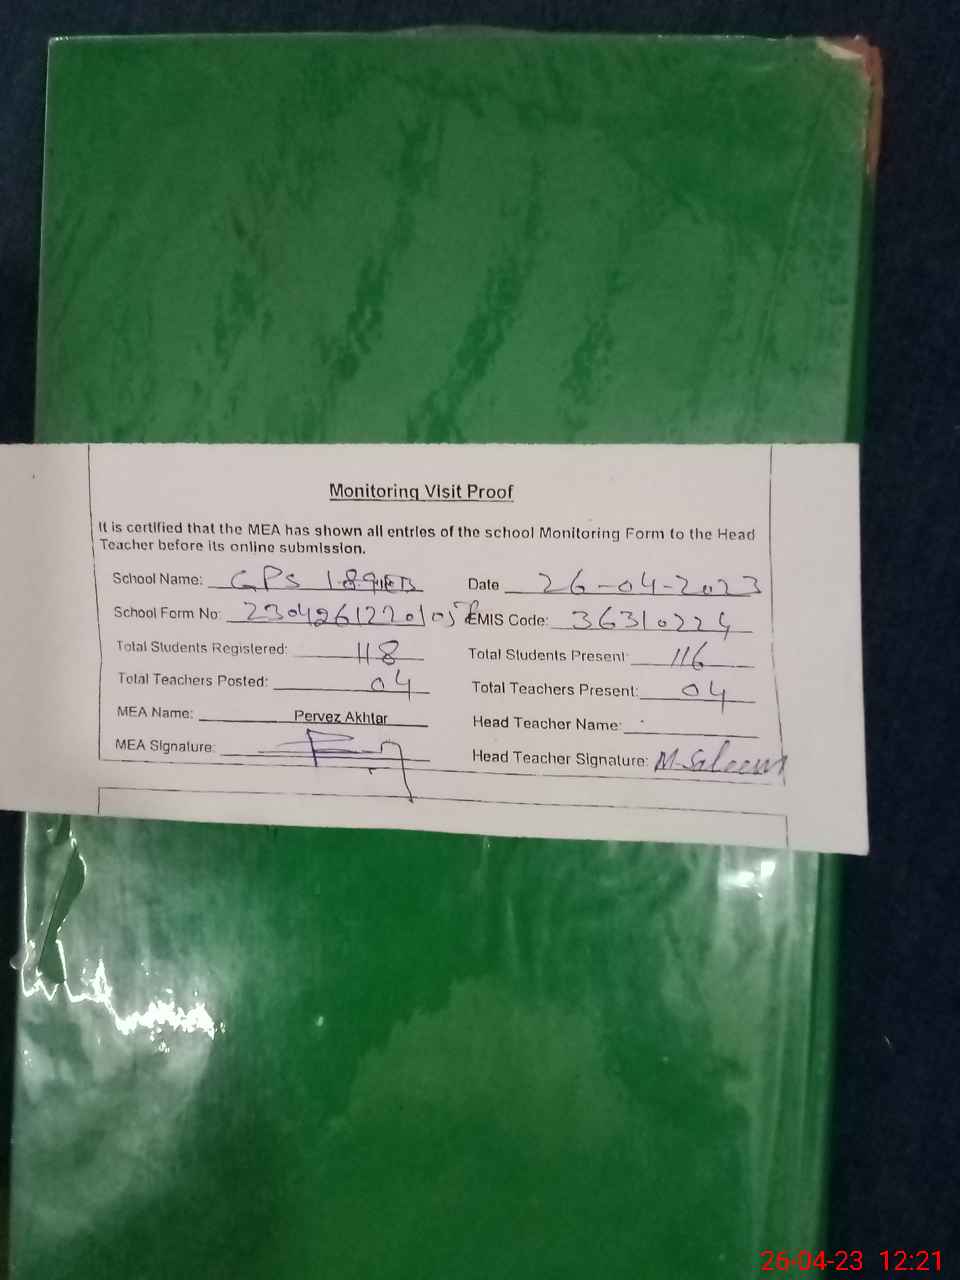 Monitoring Visit Proof
It is certified that the MEA has shown all entries of the school Monitoring Form to the Head
Teacher before its online submission.
School Name: GPS 189/EB Date 26-04-2023
School Form No: EMIS Code: 36310224
Total Students Registered: 118 Total Students Present: 116
Total Teachers Posted: 04 Total Teachers Present: 04
MEA Name: Pervez Akhtar Head Teacher Name:
MEA Signature: Head Teacher Signature: M. Saleem
26-04-23 12:21